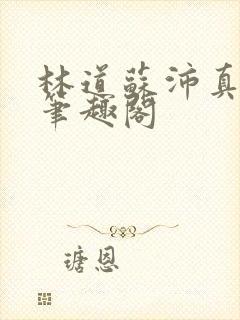 林道蘇沛真
筆趣閣
瑭恩